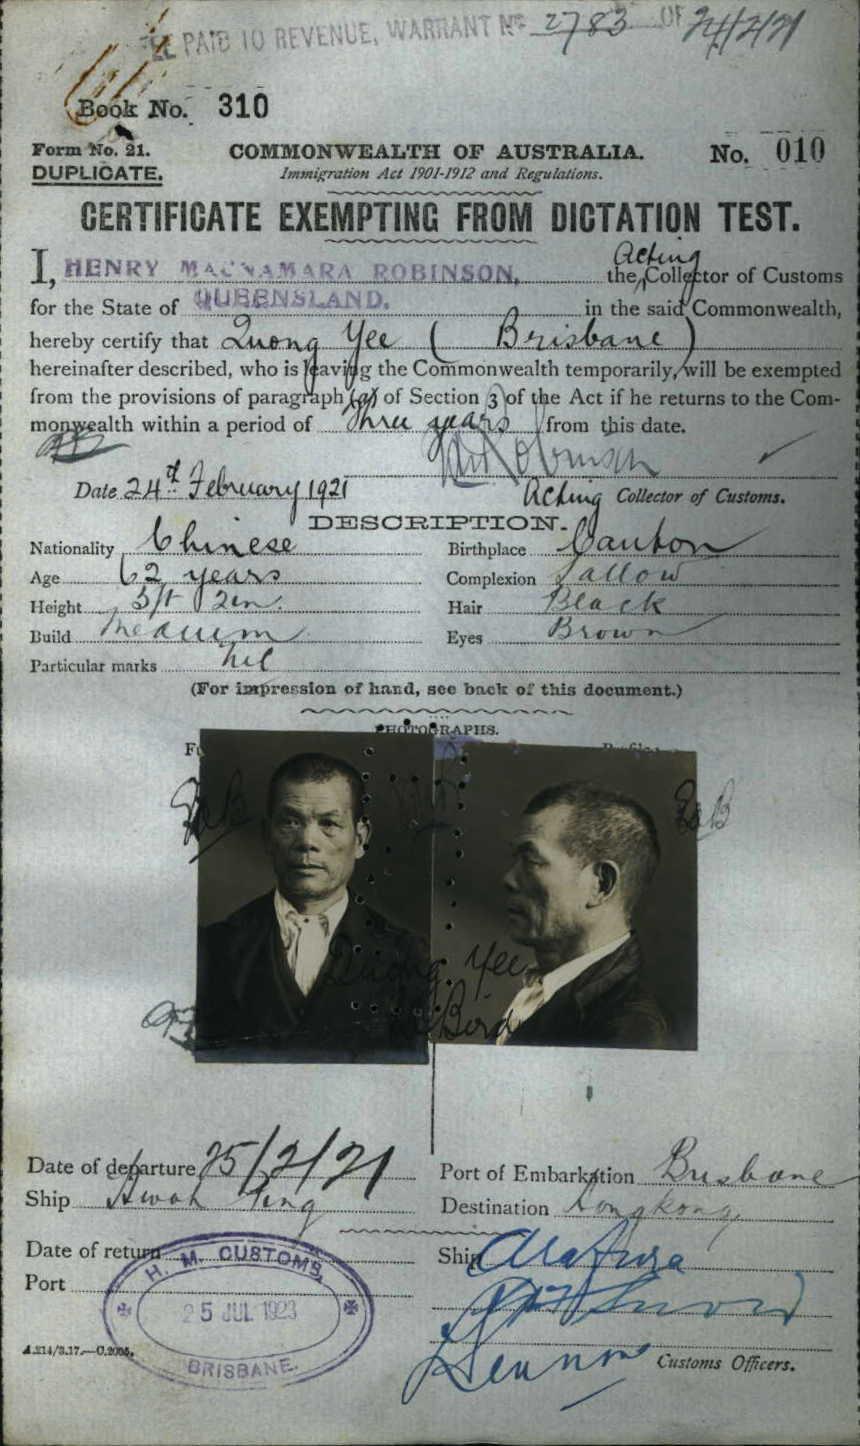 PAID TO REVENUE, WARRANT No 2783 OF 24/2/21
Book No. 310
Form No. 21. COMMONWEALTH OF AUSTRALIA. No. 010
DUPLICATE. Immigration Act 1901-1912 and Regulations.
CERTIFICATE EXEMPTING FROM DICTATION TEST.
I, HENRY MACNAMARA ROBINSON, the Acting Collector of Customs
for the State of QUEENSLAND. in the said Commonwealth,
hereby certify that Quong Yee (Brisbane)
hereinafter described, who is leaving the Commonwealth temporarily, will be exempted
from the provisions of paragraph (a) of Section 3 of the Act if he returns to the Com-
monwealth within a period of three years from this date.
Date 24th February 1921 Acting Collector of Customs.
DESCRIPTION.
Nationality Chinese Birthplace Canton
Age 62 years Complexion Sallow
Height 5ft 2in. Hair Black
Build Medium Eyes Brown
Particular marks Nil
(For impression of hand, see back of this document.)
PHOTOGRAPHS.
Quong Yee
Bird
Date of departure 25/2/21 Port of Embarkation Brisbane
Ship Hwah Ping Destination Hongkong
Date of return Ship Arafura
Port
H. M. CUSTOMS,
25 JUL 1923
BRISBANE.
A.214/3.17.—C.2095. Customs Officers.